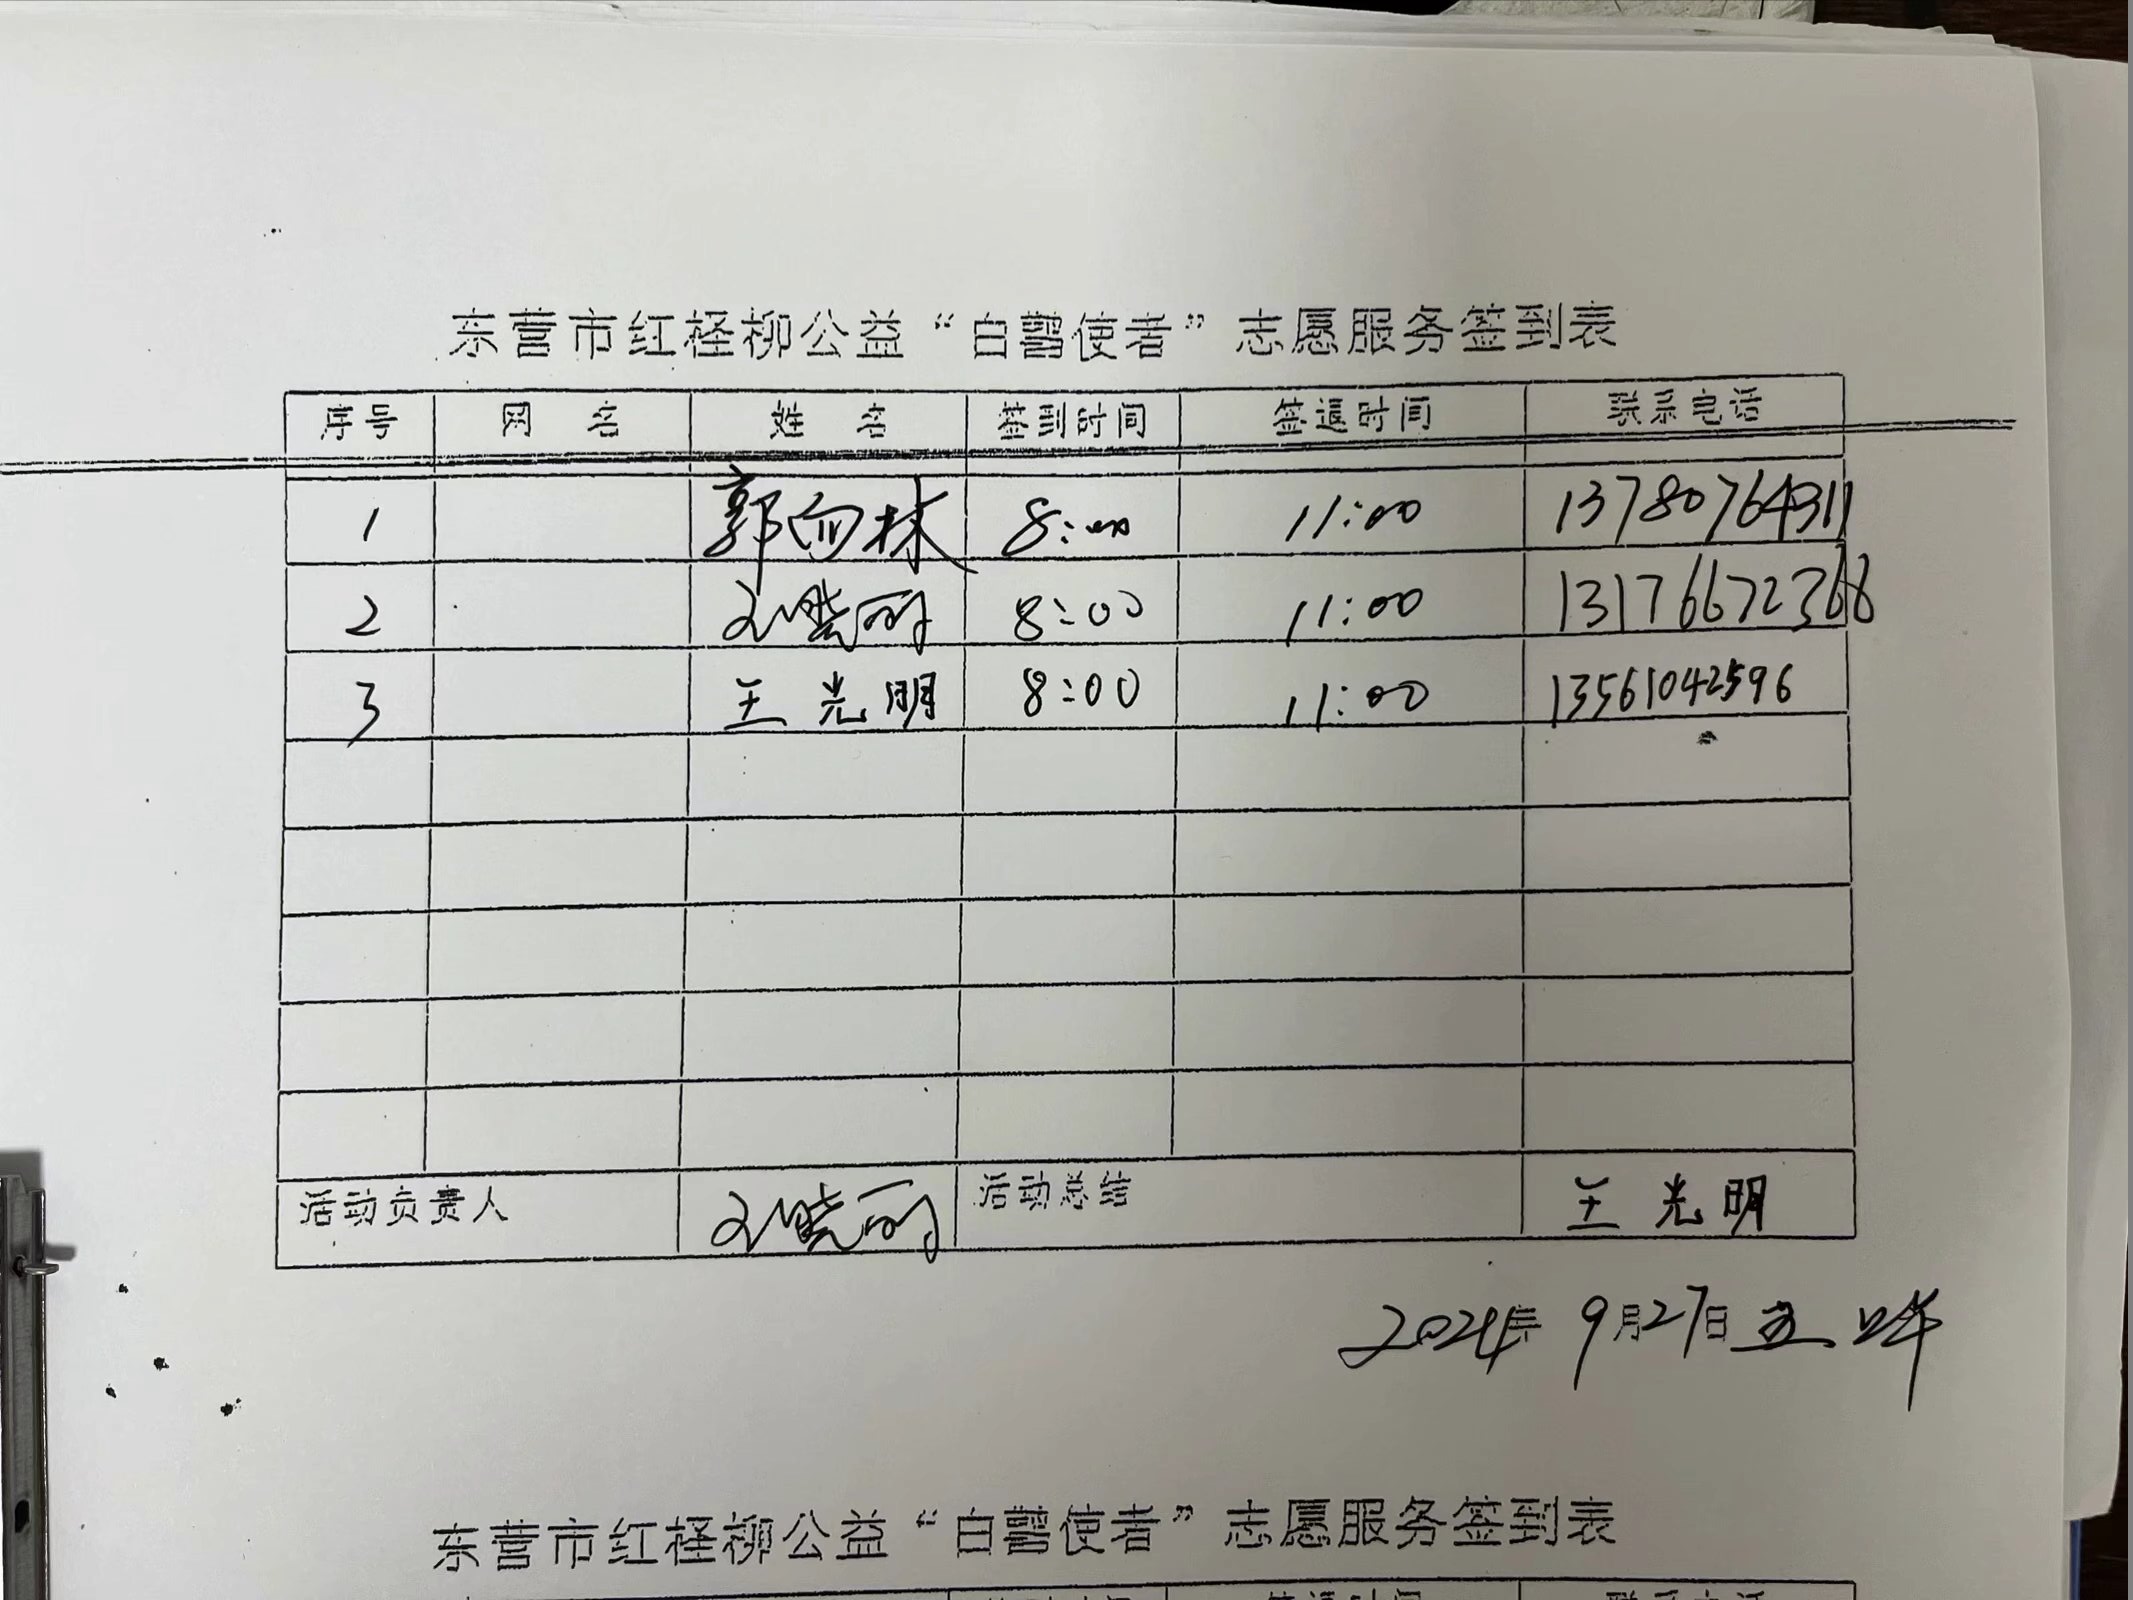 东营市红柽柳公益“白鹭使者”志愿服务签到表
序号 网 名 姓 名 签到时间 签退时间 联系电话
1 郭向林 8:00 11:00 13780764311
2 刘晓丽 8:00 11:00 13176672368
3 王光明 8:00 11:00 13561042596
活动负责人 刘晓丽 活动总结 王光明
2024年 9月27日 五 上午
东营市红柽柳公益“白鹭使者”志愿服务签到表
签到时间 签退时间 联系电话